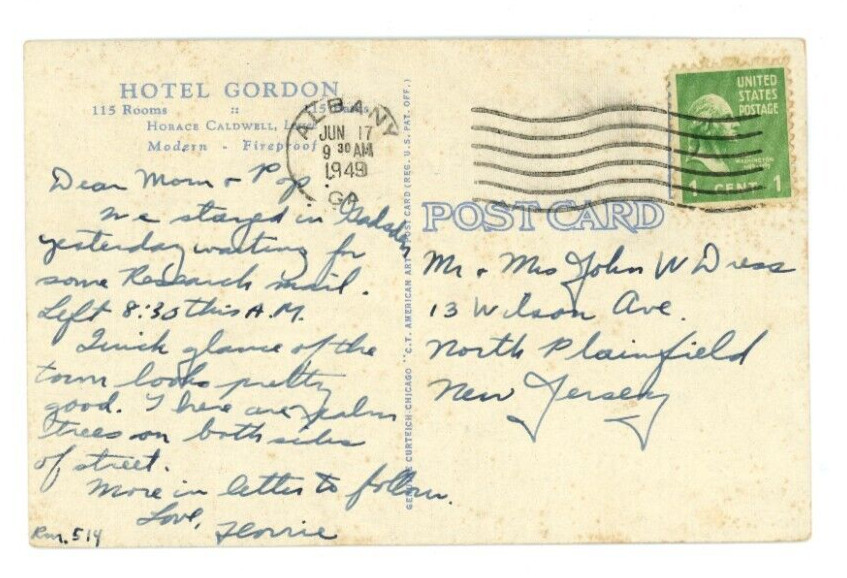 HOTEL GORDON
115 Rooms :: 115 Baths
HORACE CALDWELL,
Modern - Fireproof
ALBANY
JUN 17
9 30 AM
1949
GA.
UNITED
STATES
POSTAGE
1 CENT 1
POST CARD
Dear Mom & Pop,
We stayed in Gadsden
yesterday waiting for
some Research mail.
Left 8:30 this A.M.
Quick glance of the
town looks pretty
good. There are palm
trees on both sides
of street.
More in letter to follow.
Love,
Florrie
Rm. 514
GENUINE CURTEICH-CHICAGO "C.T. AMERICAN ART" POST CARD (REG. U.S. PAT. OFF.)
Mr. & Mrs John W Dress
13 Wilson Ave.
North Plainfield
New Jersey